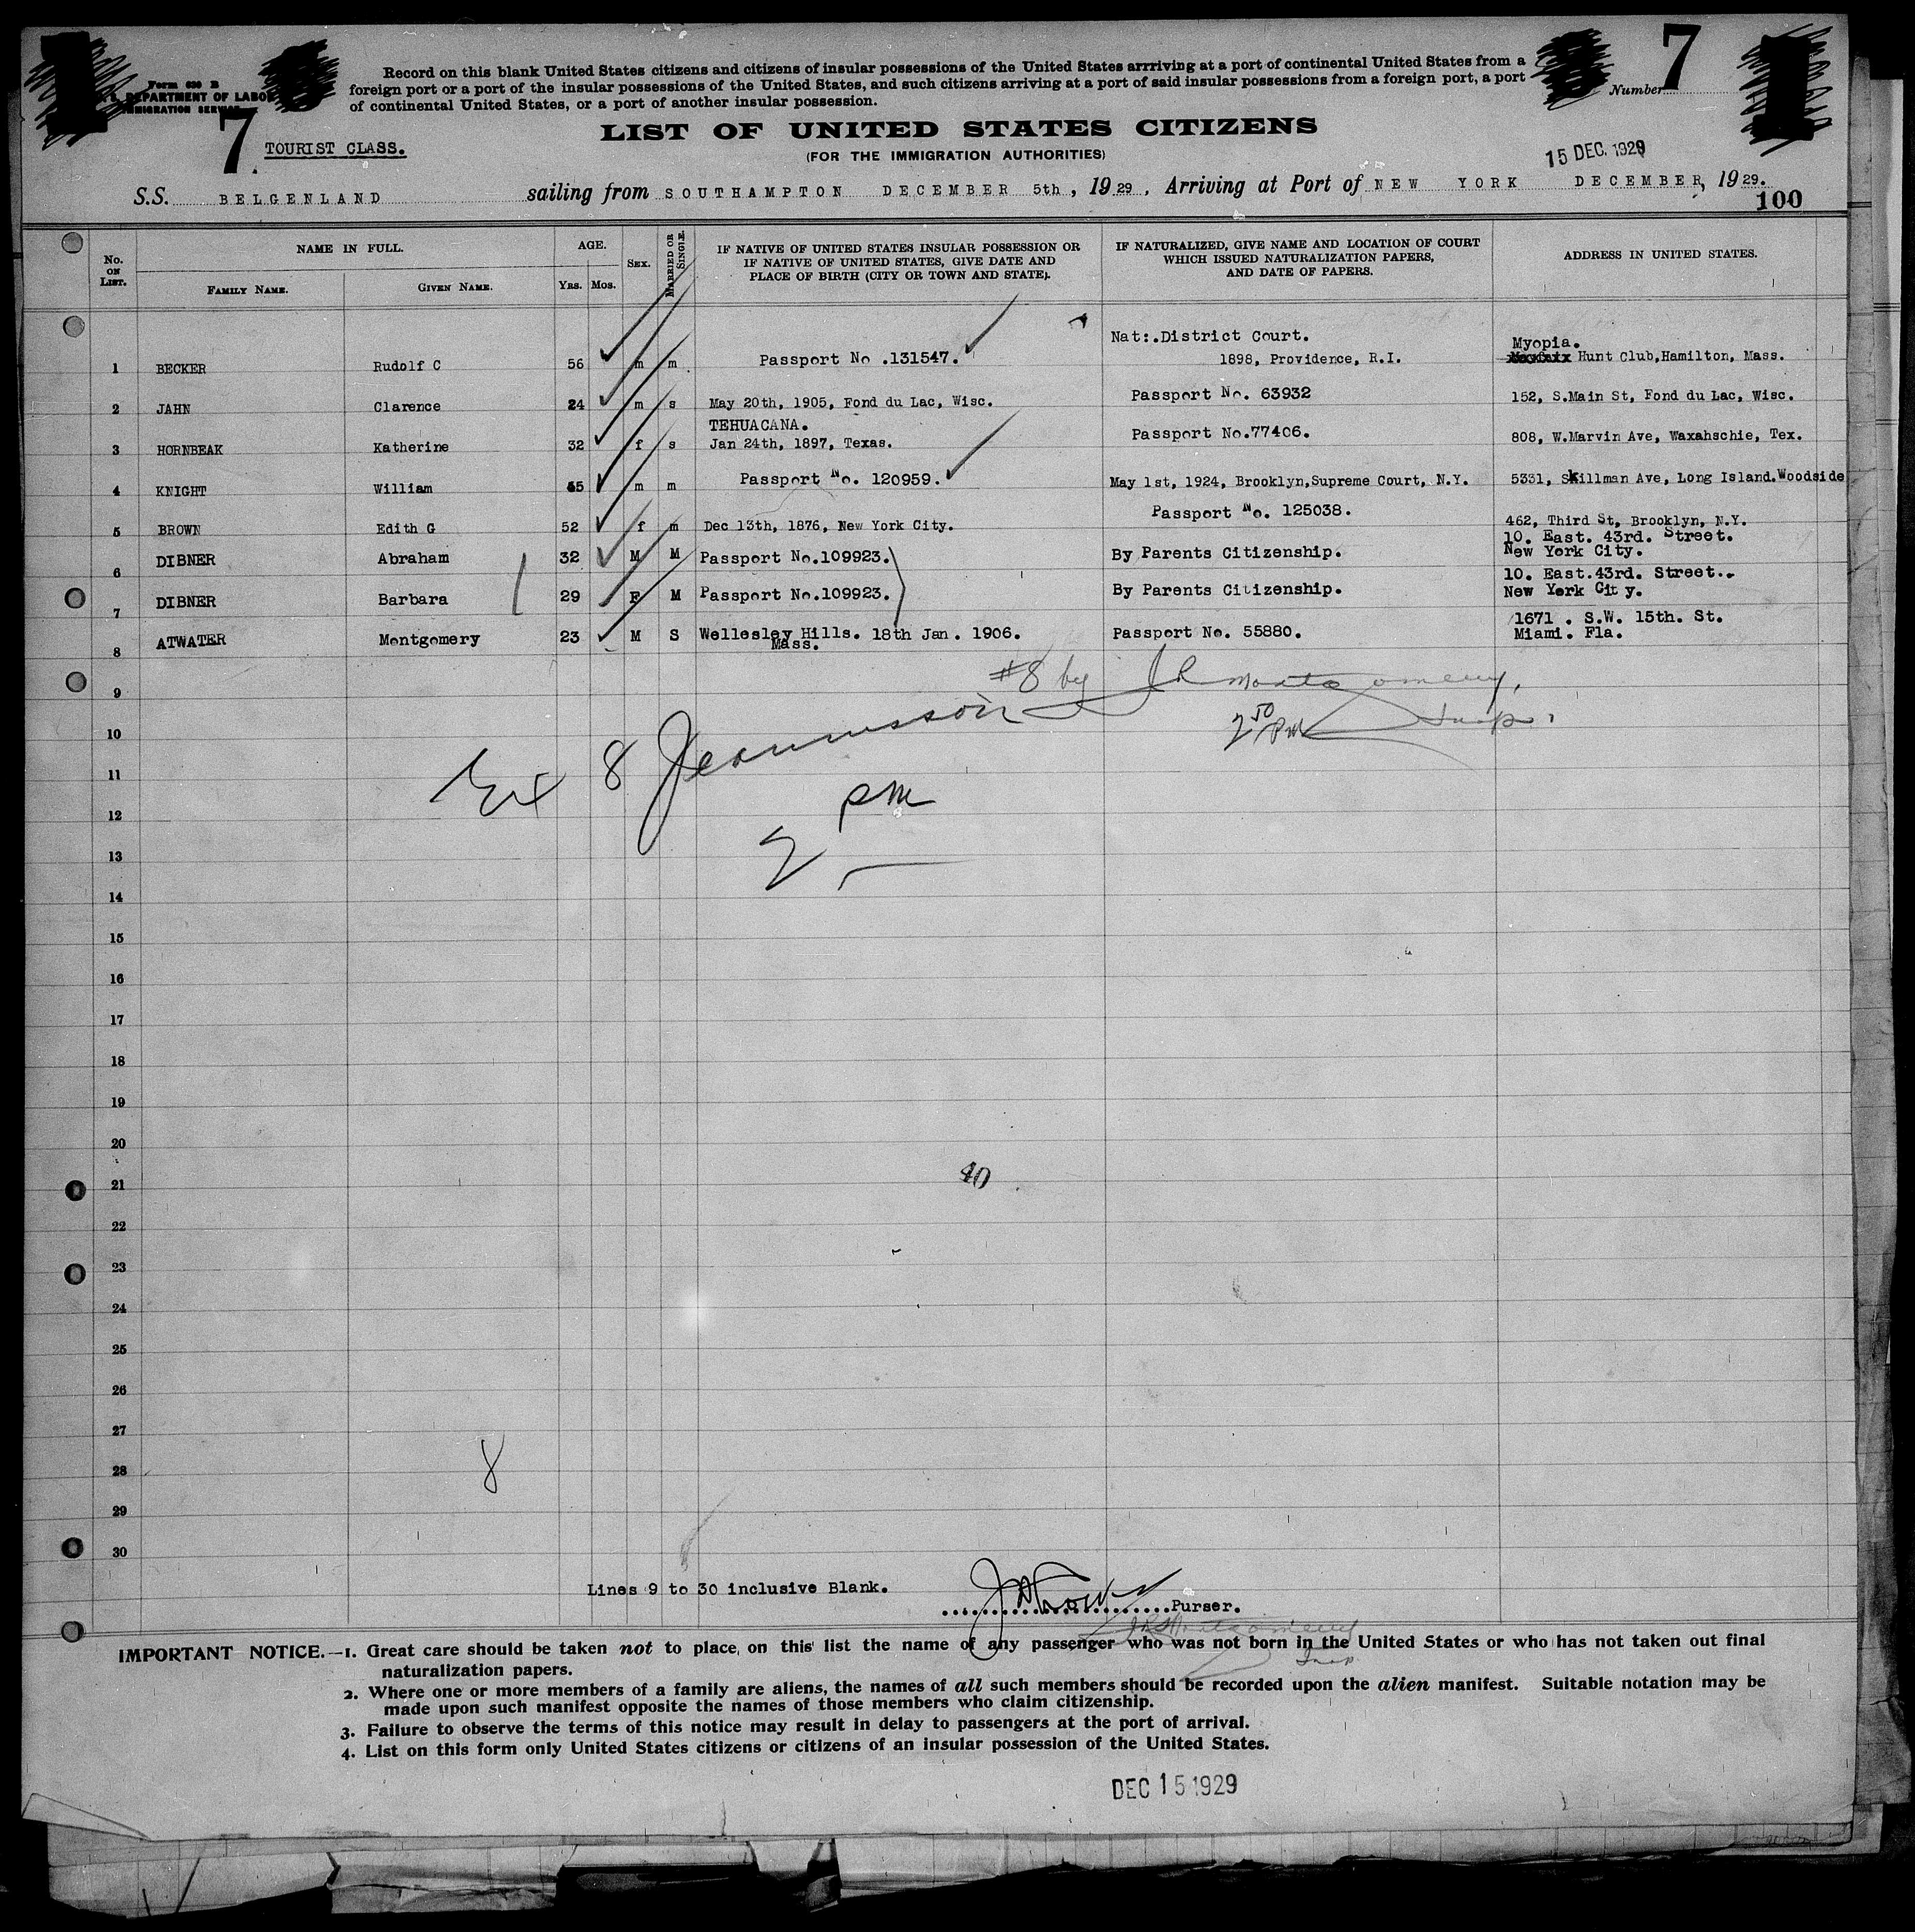 Form 630 B
DEPARTMENT OF LABOR
IMMIGRATION SERVICE
Record on this blank United States citizens and citizens of insular possessions of the United States arrriving at a port of continental United States from a
foreign port or a port of the insular possessions of the United States, and such citizens arriving at a port of said insular possessions from a foreign port, a port
of continental United States, or a port of another insular possession.
Number 7
7
TOURIST CLASS.
LIST OF UNITED STATES CITIZENS
(FOR THE IMMIGRATION AUTHORITIES)
15 DEC. 1929
S.S. BELGENLAND sailing from SOUTHAMPTON DECEMBER 5th, 1929, Arriving at Port of NEW YORK DECEMBER, 1929.
100
No. ON LIST. NAME IN FULL. FAMILY NAME. GIVEN NAME. AGE. YRS. MOS. SEX. MARRIED OR SINGLE. IF NATIVE OF UNITED STATES INSULAR POSSESSION OR IF NATIVE OF UNITED STATES, GIVE DATE AND PLACE OF BIRTH (CITY OR TOWN AND STATE). IF NATURALIZED, GIVE NAME AND LOCATION OF COURT WHICH ISSUED NATURALIZATION PAPERS, AND DATE OF PAPERS. ADDRESS IN UNITED STATES.
Nat:.District Court. Myopia.
1 BECKER Rudolf C 56 m m. Passport No .131547. 1898, Providence, R.I. Hunt Club,Hamilton, Mass.
Passport No. 63932
2 JAHN Clarence 24 m s May 20th, 1905, Fond du Lac, Wisc. 152, S.Main St, Fond du Lac, Wisc.
TEHUACANA. Passport No.77406.
3 HORNBEAK Katherine 32 f s Jan 24th, 1897, Texas. 808, W.Marvin Ave, Waxahschie, Tex.
4 KNIGHT William m m Passport No. 120959. May 1st, 1924, Brooklyn,Supreme Court, N.Y. 5331, Skillman Ave, Long Island.Woodside
Passport No. 125038.
5 BROWN Edith G 52 f m Dec 13th, 1876, New York City. 462, Third St, Brooklyn, N.Y.
10. East. 43rd. Street.
6 DIBNER Abraham 32 M M Passport No.109923. By Parents Citizenship. New York City.
10. East.43rd. Street..
7 DIBNER Barbara 29 F M Passport No.109923. By Parents Citizenship. New York City.
1671 . S.W. 15th. St.
8 ATWATER Montgomery 23 M S Wellesley Hills. 18th Jan. 1906. Passport No. 55880. Miami. Fla.
Mass.
#8 by J R Montgomery,
9
2 50 PM Insp.
10
Ex 8
11
pm
12
2
13
14
15
16
17
18
19
20
40
21
22
23
24
25
26
27
8
28
29
30
Lines 9 to 30 inclusive Blank.
Purser.
J R Montgomery
Insp
IMPORTANT NOTICE.—1. Great care should be taken not to place on this list the name of any passenger who was not born in the United States or who has not taken out final
naturalization papers.
2. Where one or more members of a family are aliens, the names of all such members should be recorded upon the alien manifest. Suitable notation may be
made upon such manifest opposite the names of those members who claim citizenship.
3. Failure to observe the terms of this notice may result in delay to passengers at the port of arrival.
4. List on this form only United States citizens or citizens of an insular possession of the United States.
DEC 15 1929